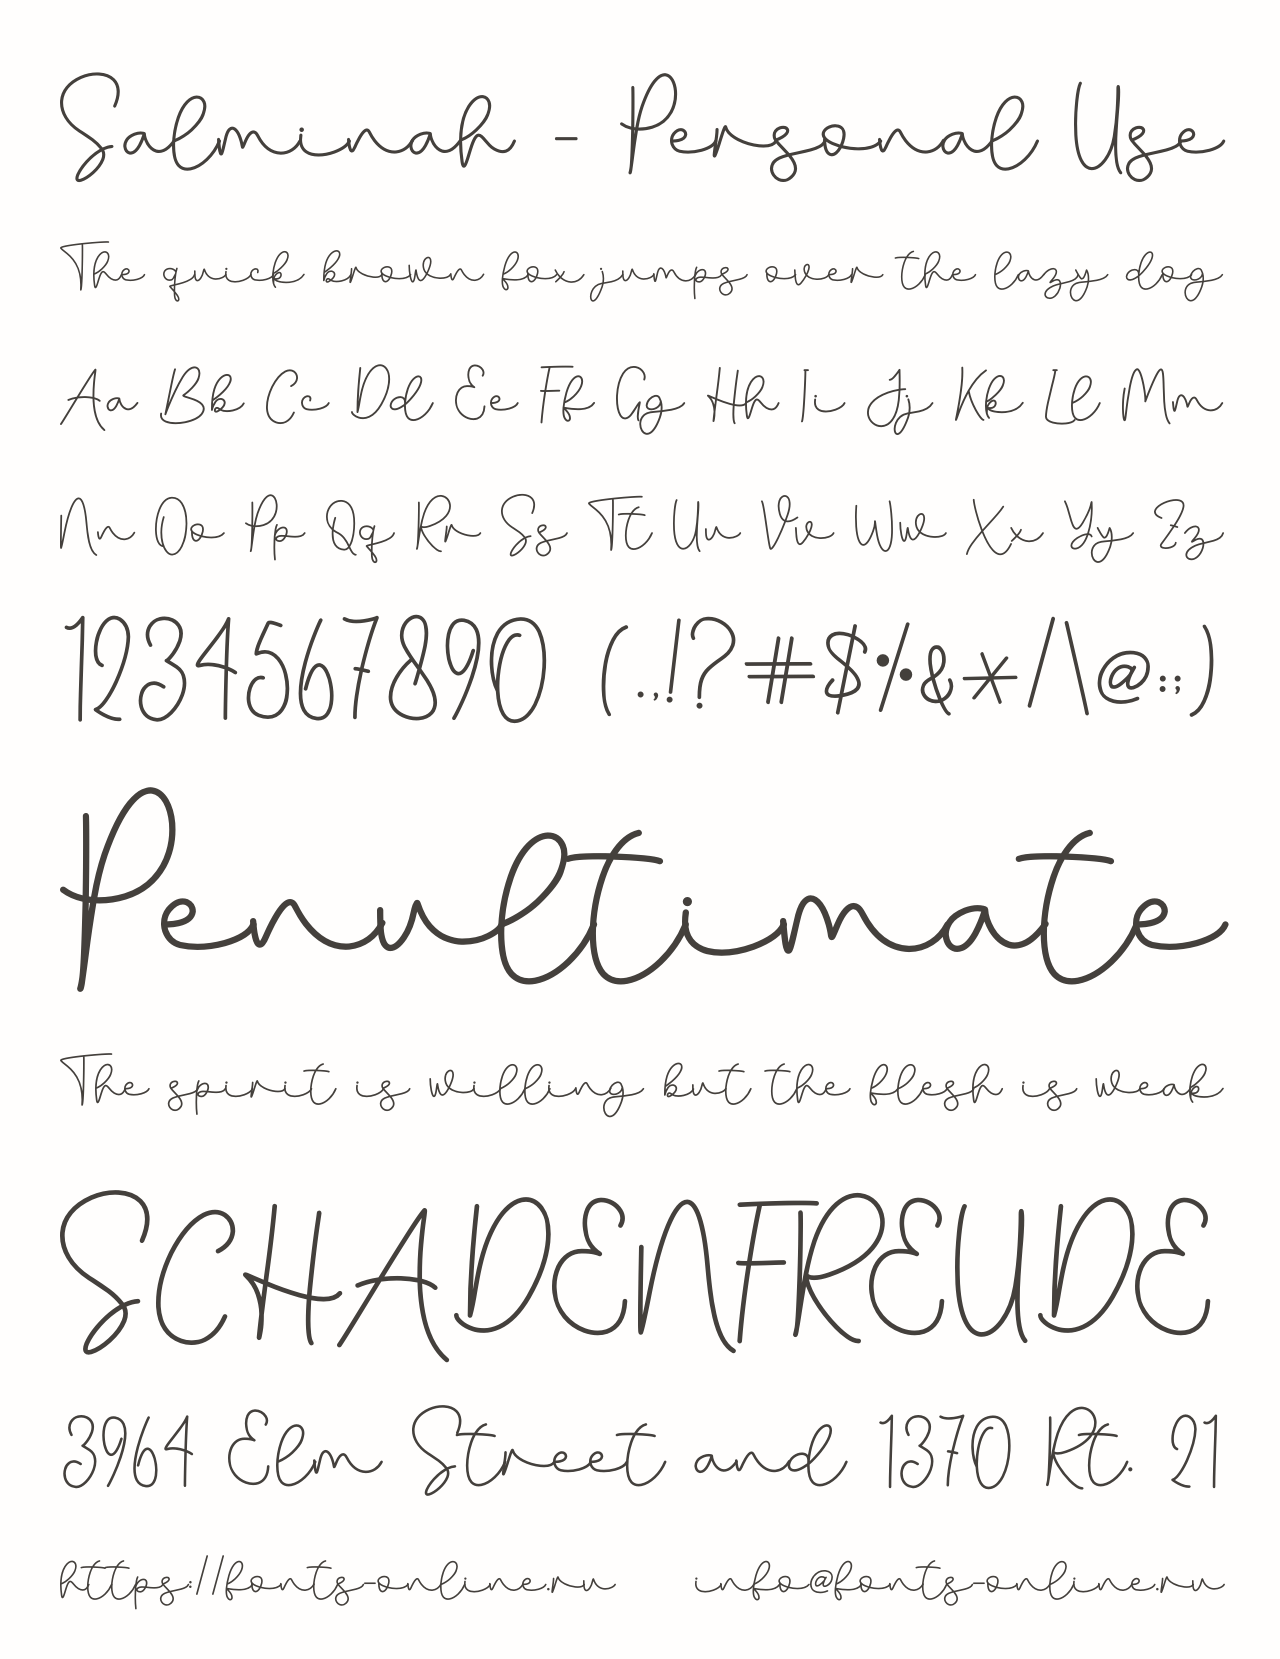 Salminah - Personal Use
The quick brown fox jumps over the lazy dog
Aa Bb Cc Dd Ee Ff Gg Hh Ii Jj Kk Ll Mm
Nn Oo Pp Qq Rr Ss Tt Uu Vv Ww Xx Yy Zz
1234567890 (.,!?#$%&*/\@:;)
Penultimate
The spirit is willing but the flesh is weak
SCHADENFREUDE
3964 Elm Street and 1370 Rt. 21
https://fonts-online.ru info@fonts-online.ru